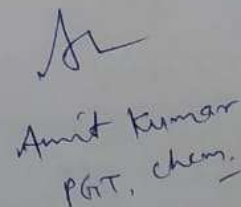 Amit Kumar
PGT, Chem.